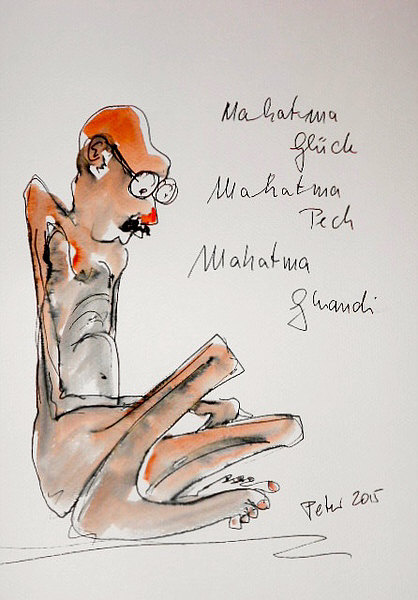 Mahatma
Glück
Mahatma
Pech
Mahatma
Ghandi
Peter 2015